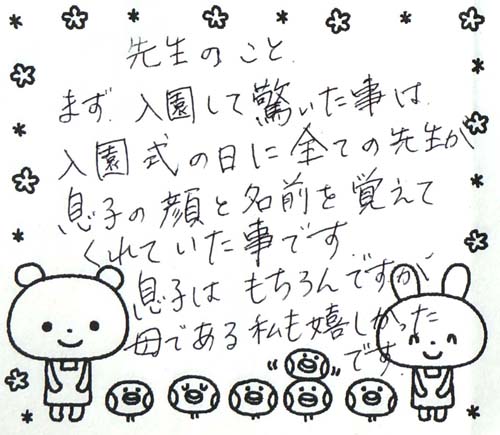 先生のこと
まず、入園して驚いた事は、
入園式の日に全ての先生が
息子の顔と名前を覚えて
くれていた事です。
息子はもちろんですが
母である私も嬉しかった
です。